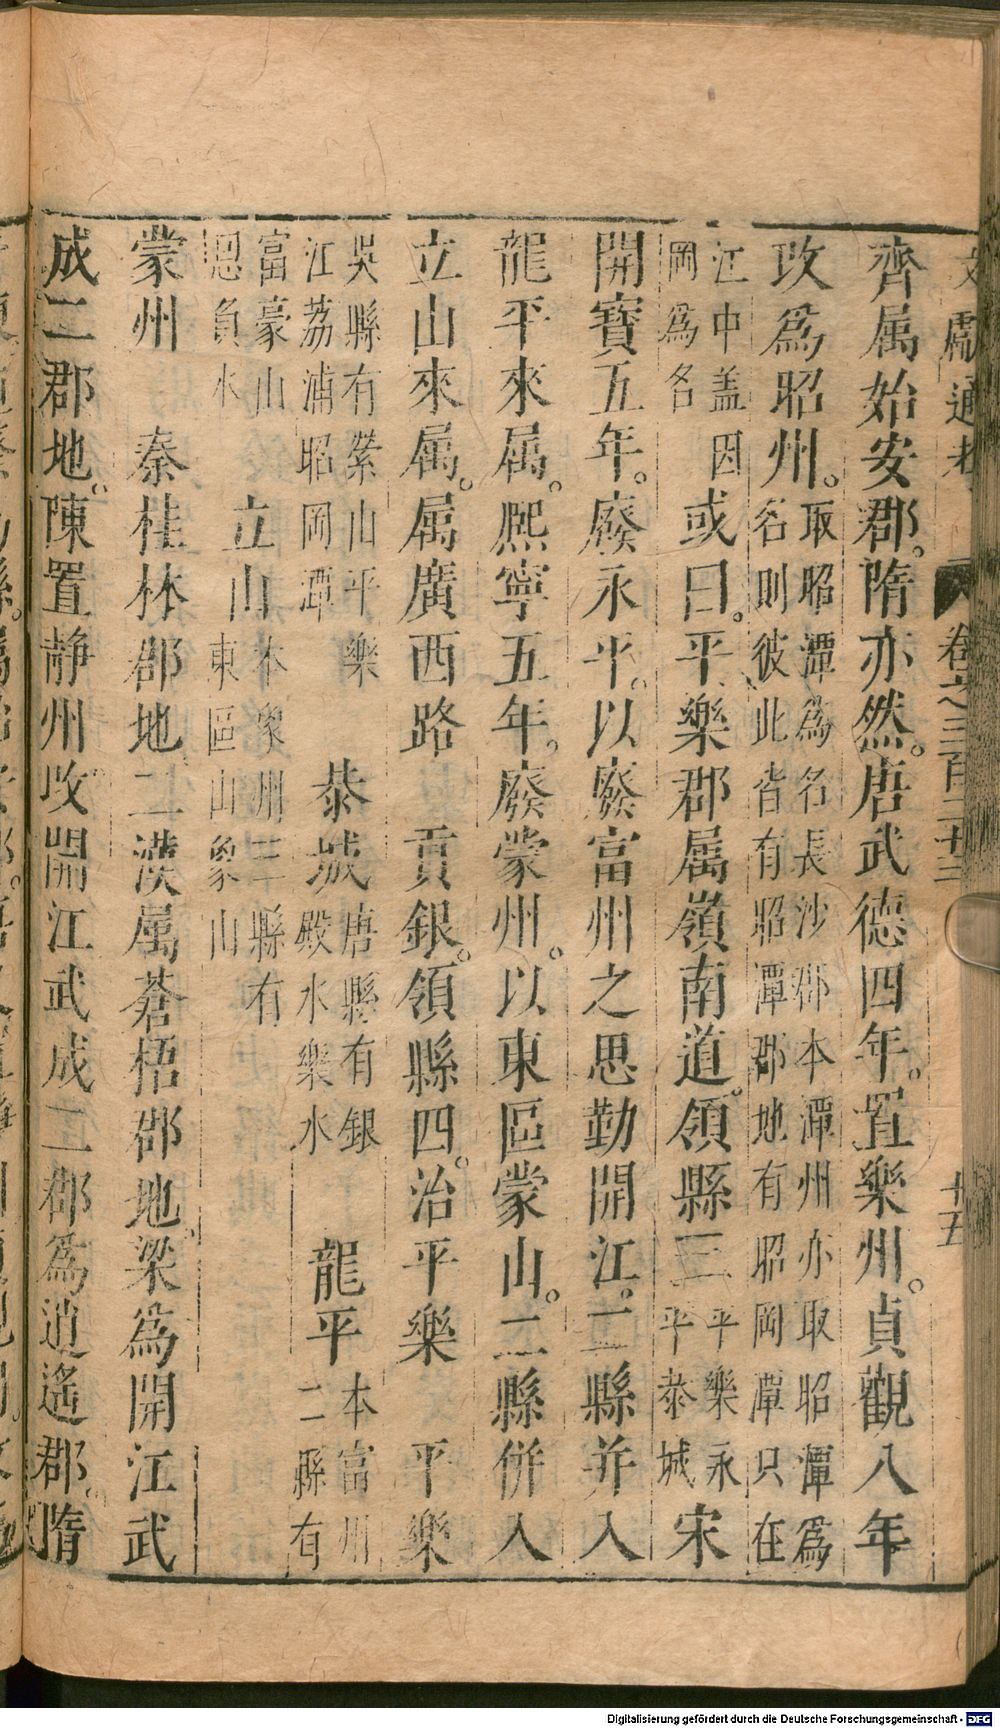 文獻通考 卷之三百二十三 十五
齊属始安郡。隋亦然。唐武德四年。置樂州。貞觀八年
改爲昭州。取昭潭爲名長沙郡本潭州亦取昭潭爲
名則彼此皆有昭潭郡地有昭岡潭只在
江中盖因
岡爲名
或曰。平樂郡属嶺南道。領縣三平樂永
平恭城
宋
開寶五年。廢永平。以廢富州之思勤開江。二縣并入
龍平來属。熙寧五年。廢蒙州。以東區蒙山。二縣併入
立山來属。属廣西路 貢銀。領縣四。治平樂 平樂
吳縣有縈山平樂
江荔浦昭岡潭
恭城唐縣有銀
殿水樂水
龍平本富州
二縣有
富豪山
思負水
立山本象州三縣有
東區山象山
蒙州 秦桂林郡地二漢属蒼梧郡地。梁爲開江武
成二郡地。陳置静州改開江武成二郡爲逍遙郡。隋
Digitalisierung gefördert durch die Deutsche Forschungsgemeinschaft - DFG